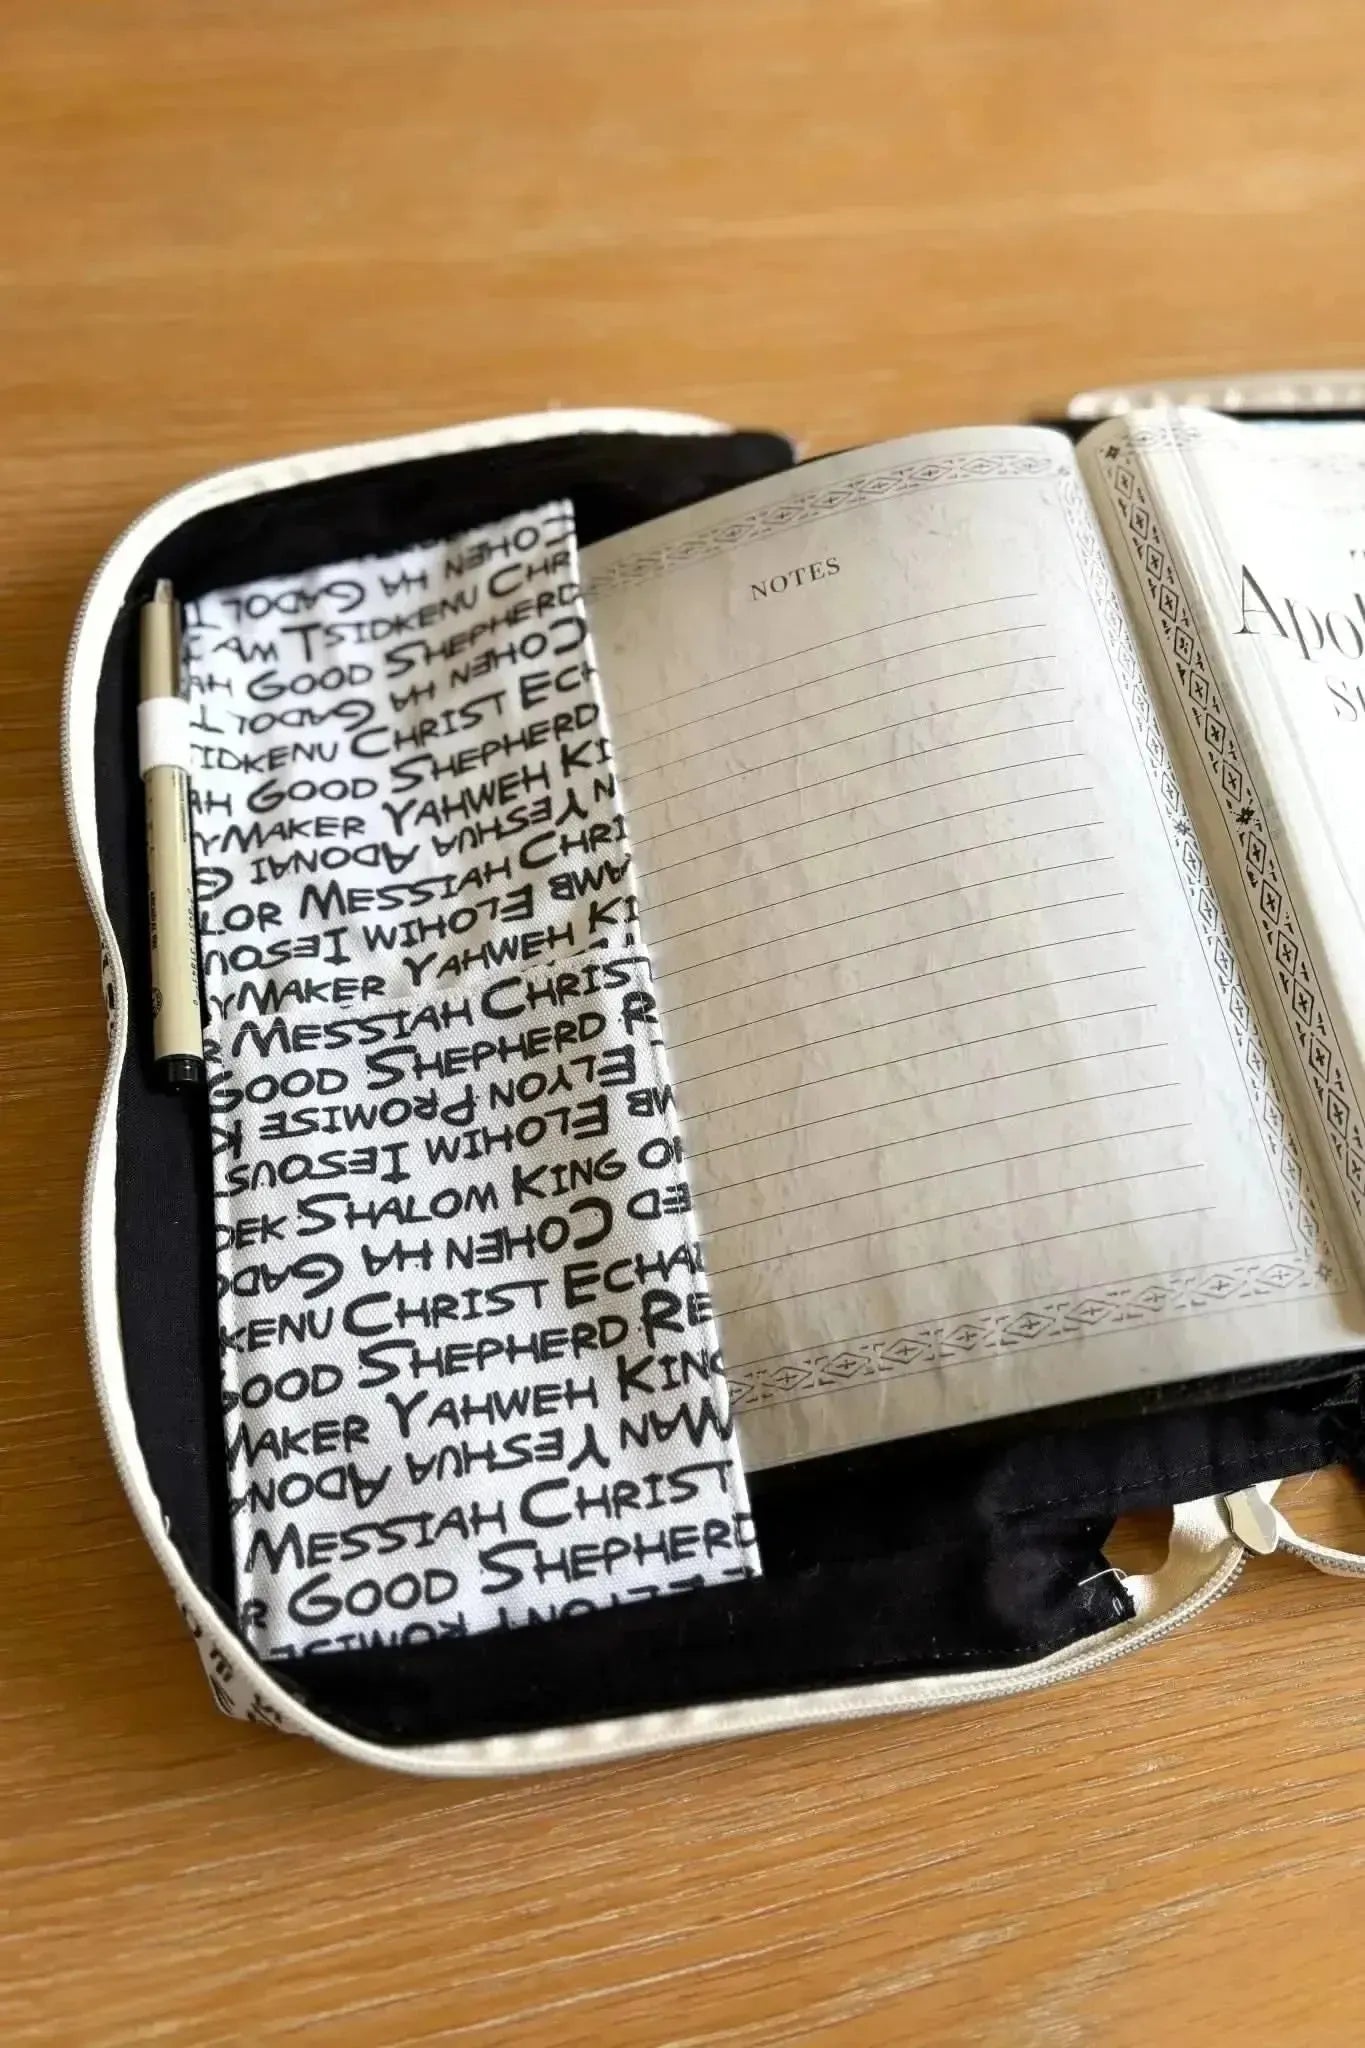 COHEN HA GADOL
I AM TSIDKENU CHR
AH GOOD SHEPHERD
COHEN HA GADOL
SIDKENU CHRIST ECH
AH GOOD SHEPHERD
YMAKER YAHWEH KI
N YESHUA ADONAI G
LOR MESSIAH CHRI
AMB ELOHIM IESOU
YMAKER YAHWEH KI
R MESSIAH CHRIST
GOOD SHEPHERD R
ELYON PROMISE K
MB ELOHIM IESOUS
DEK SHALOM KING O
ED COHEN HA GADO
KENU CHRIST ECHA
GOOD SHEPHERD RE
MAKER YAHWEH KING
MAN YESHUA ADONA
MESSIAH CHRIST
R GOOD SHEPHERD
ELYON PROMISE
NOTES
Apo